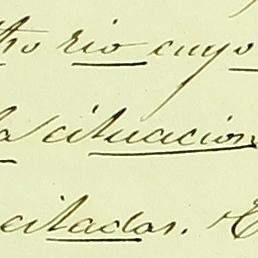 rio cuyo
la cituacion
citados.